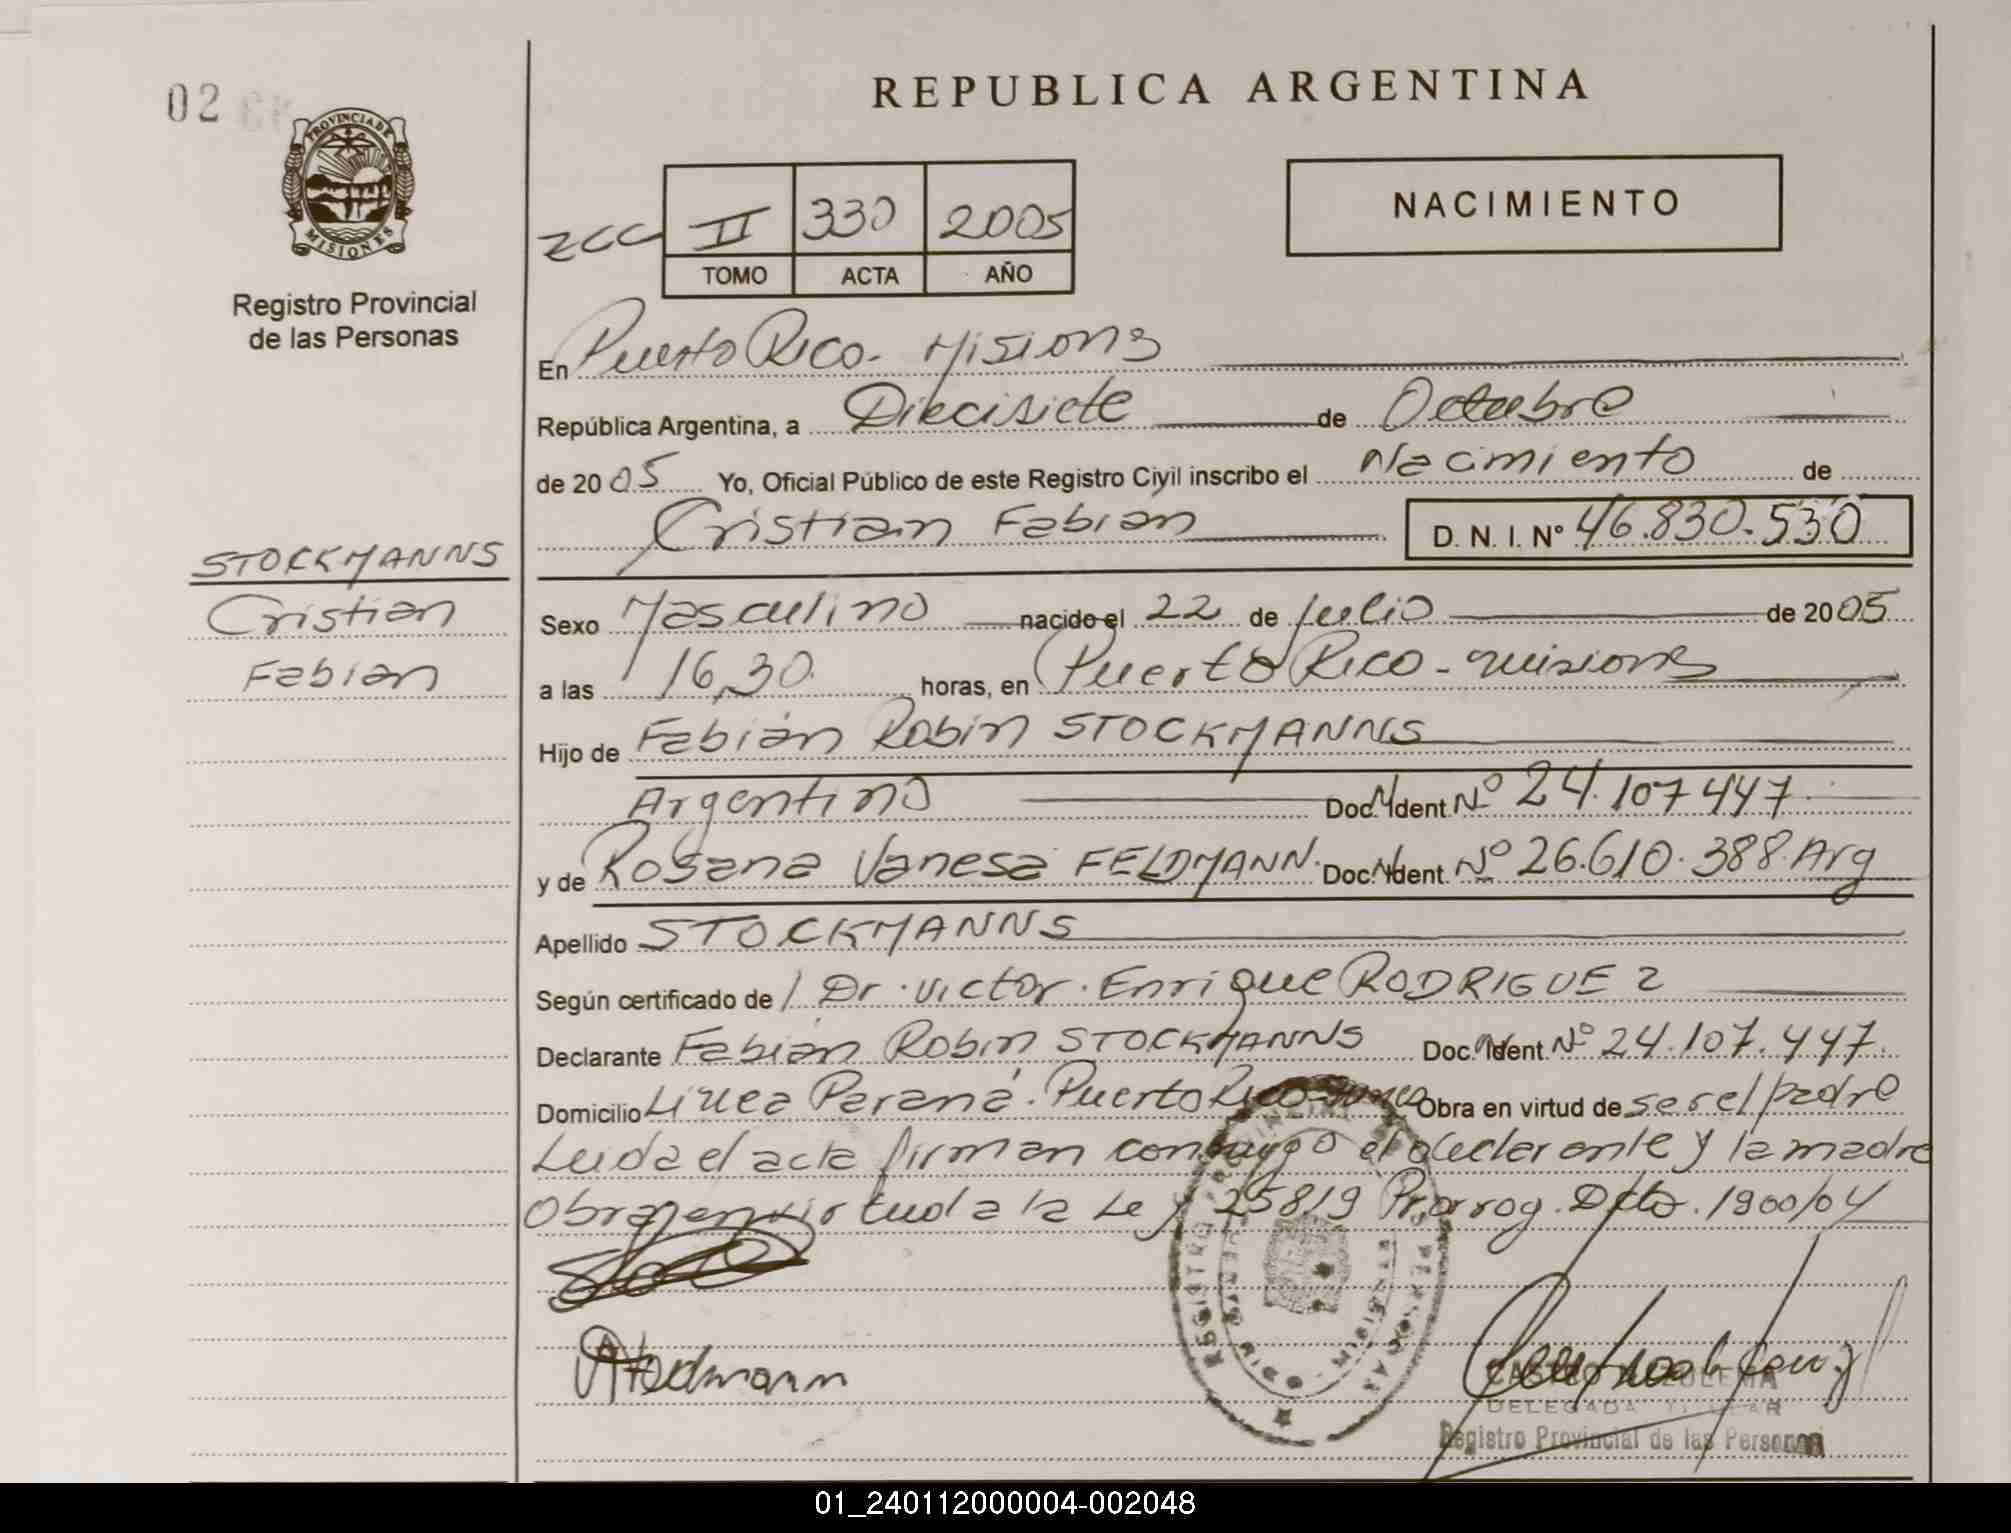 02
REPUBLICA ARGENTINA
PROVINCIA DE
MISIONES
Registro Provincial
de las Personas
NACIMIENTO
II 330 2005
TOMO ACTA AÑO
En Puerto Rico - Misiones
República Argentina, a Diecisiete de Octubre
de 2005 Yo, Oficial Público de este Registro Civil inscribo el Nacimiento de
Cristian Fabian D. N. I. Nº 46.830.530
STOCKMANNS
Cristian
Fabian
Sexo Masculino nacido el 22 de Julio de 2005
a las 16,30 horas, en Puerto Rico - Misiones
Hijo de Fabián Robin STOCKMANNS
Argentino Doc. Ident. Nº 24.107.447
y de Rosana Vanesa FELDMANN. Doc. Ident. Nº 26.610.388. Arg
Apellido STOCKMANNS
Según certificado de Dr. Victor. Enrique RODRIGUEZ
Declarante Fabián Robin STOCKMANNS Doc. Ident. Nº 24.107.447.
Domicilio Línea Paraná. Puerto Rico Obra en virtud de ser el padre
Leida el acta firman conmigo el declarante y la madre
Obra en virtud a la Ley 25819 Prorrog. Dcto. 1900/04
REGISTRO PROVINCIAL DE LAS PERSONAS
MISIONES
CASTRO ZULEMA
DELEGADA TITULAR
Registro Provincial de las Personas
01_240112000004-002048